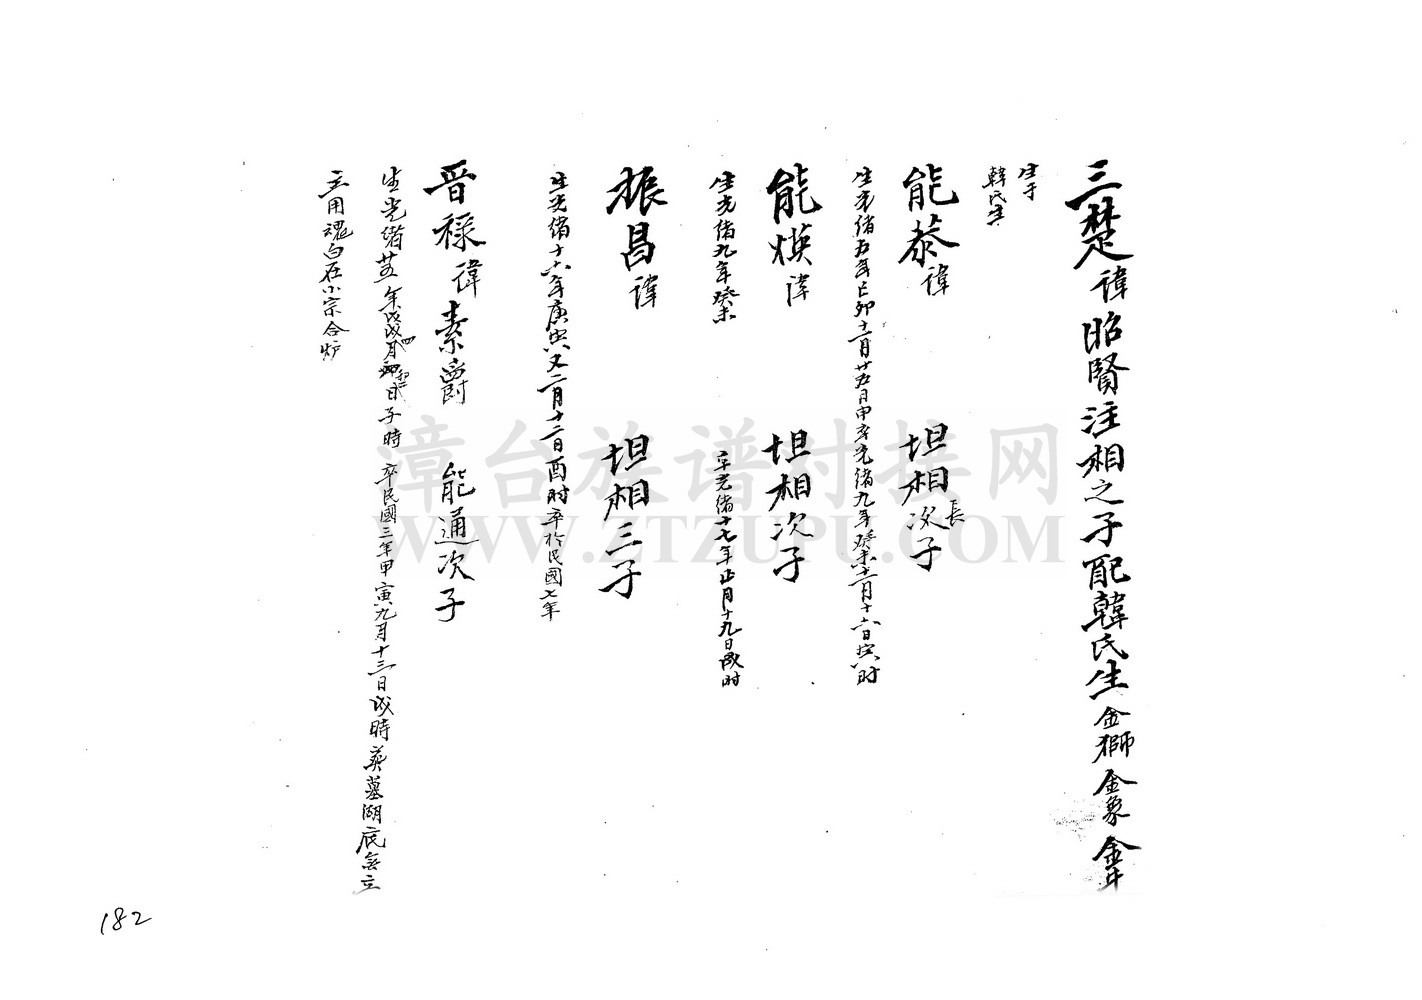 三楚諱昭賢注相之子配韓氏生金獅金象金昇
生于
韓氏生
能泰諱 坦相次長子
生光緒五年己卯十二月廿五日申卒光緒九年癸未十二月十六日寅时
能煥諱 坦相次子
生光緒九年癸未 卒光緒十七年正月十九日戌时
振昌諱 坦相三子
生光緒十六年庚寅又二月十二日酉时卒於民國七年
晋祿諱素爵 能通次子
生光緒廿四年戊戌月初日子時 卒民國三年甲寅九月十三日戌時葬墓湖底無立
主用魂白在小宗合炉
182
漳台族谱对接网
WWW.ZTZUPU.COM